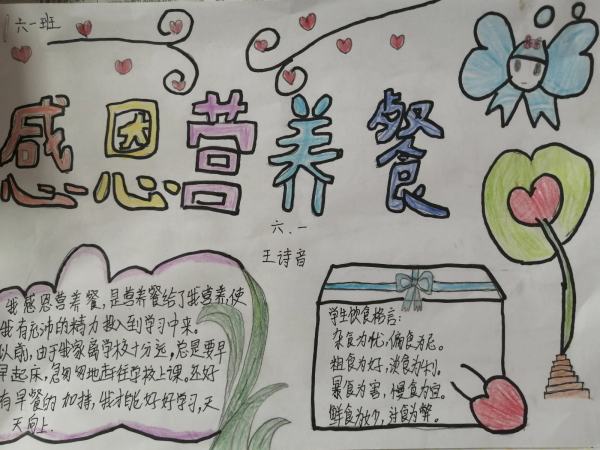 六一班
感恩营养餐
六.一
王诗音
我感恩营养餐,是营养餐给了我营养,使
我有充沛的精力投入到学习中来。
以前,由于我家离学校十分远,总是要早
早起床,急匆匆地赶往学校上课。还好
有早餐的加持,我才能好好学习,天
天向上.
学生饮食格言:
杂食为优,偏食为忌。
粗食为好,淡食为利。
暴食为害,慢食为宜。
鲜食为妙,过食为弊。